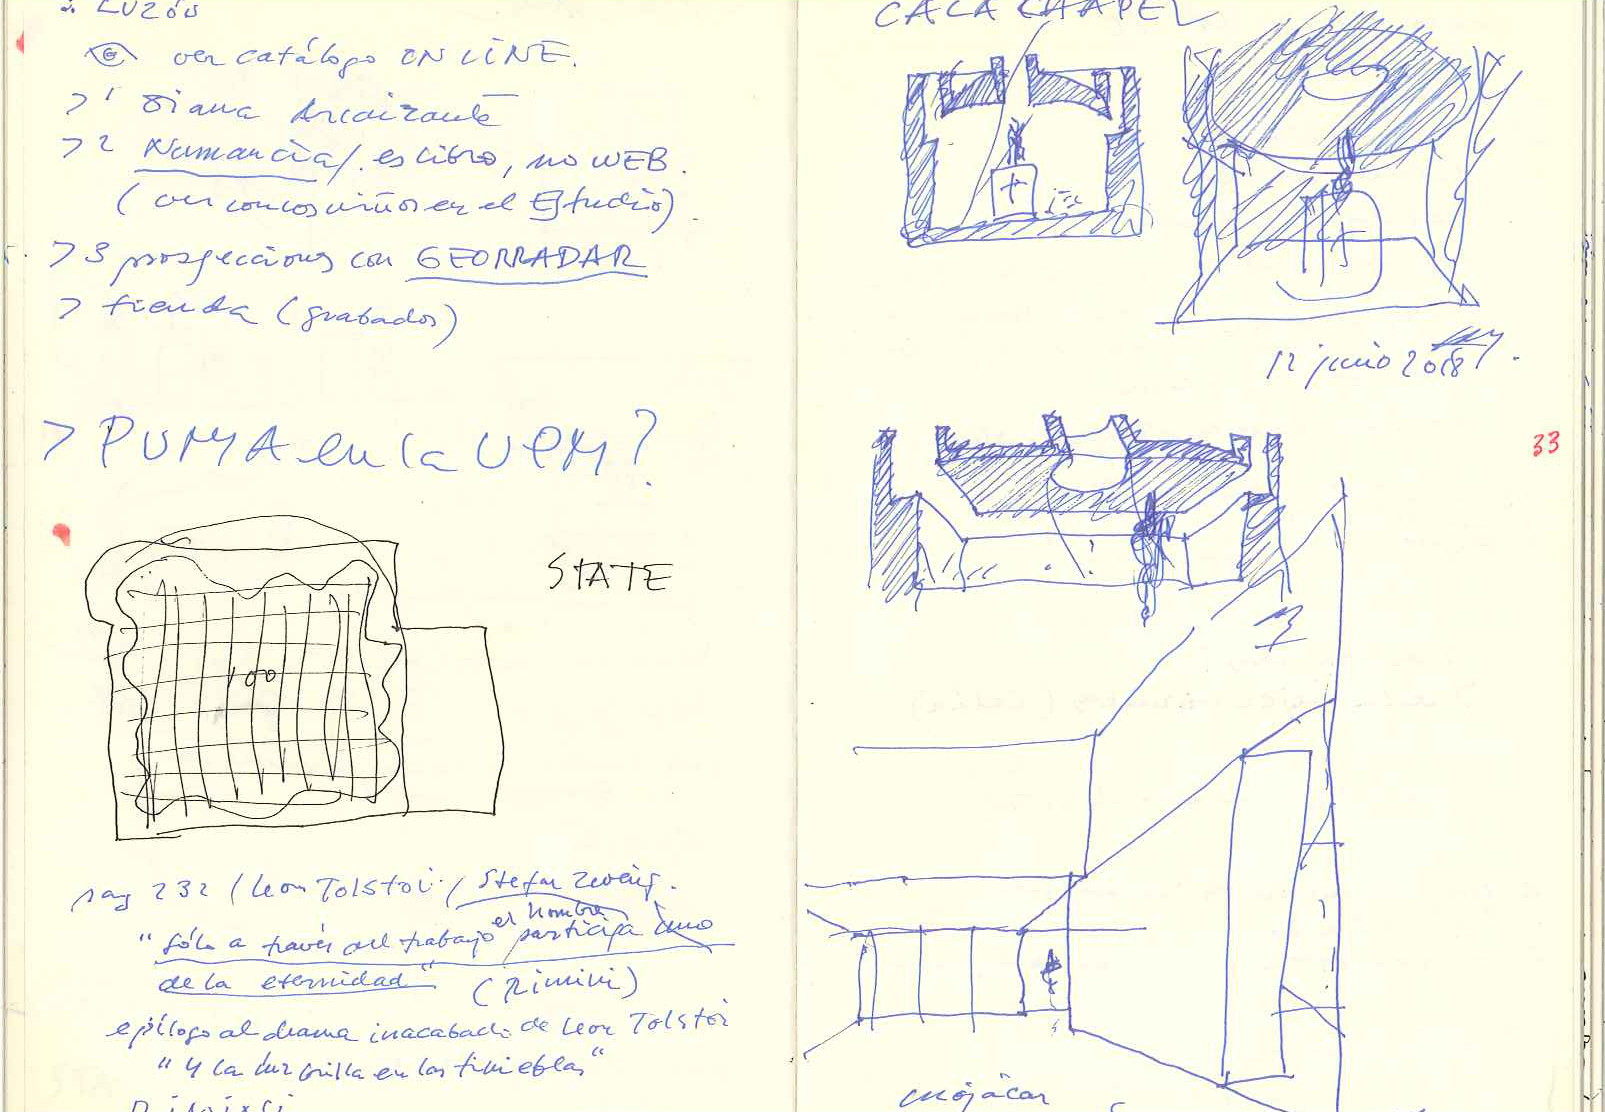 2. LUZÓN
ver catálogo ON LINE.
>1 Diana Arcaizante
>2 Numancia/. es libro, no WEB.
(ver con los niños en el Estudio).
>3 prospecciones con GEORRADAR
> tienda (grabados)
> PUMA en la UPM?
STATE
100
pag 232 (Leon Tolstoi / Stefan Zweig.
el hombre
"Sólo a través del trabajo participa uno
de la eternidad" (Rimini)
epílogo al drama inacabado de Leon Tolstoi
"Y la luz brilla en las tinieblas"
CALA CHAAPEL
12 junio 2018
33
Mojácar